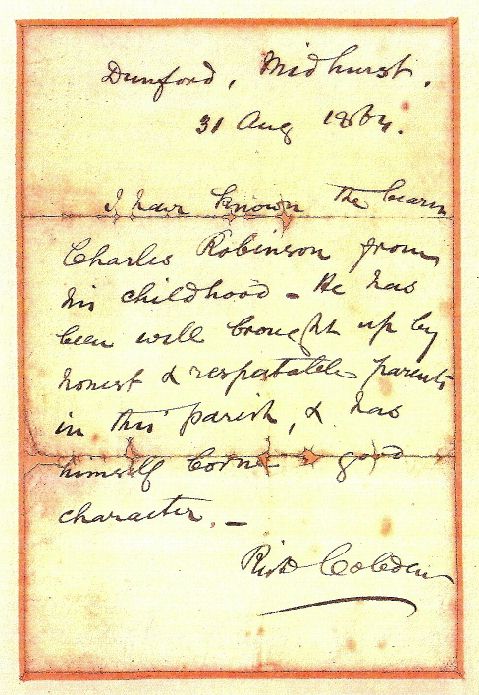 Dunford, Midhurst.
31 Aug 1864.
I have known the bearer
Charles Robinson from
his childhood - He has
been well brought up by
honest & respectable parents
in this parish, & has
himself borne good
character. -
Richd Cobden